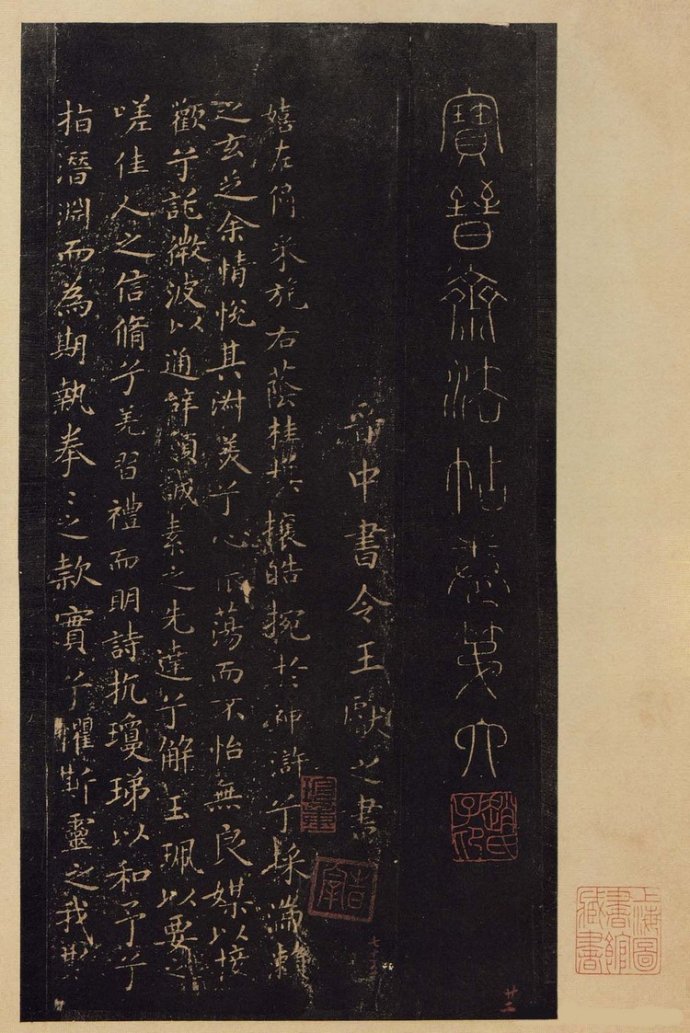 寶晉齋法帖卷第六
晉中書令王獻之書
嬉左倚采旄右蔭桂旗攘皓捥於神滸兮採湍瀨
之玄芝余情悅其淋美兮心振蕩而不怡無良媒以接
歡兮託微波以通辭願誠素之先達兮解玉珮以要之
嗟佳人之信脩兮羌習禮而明詩抗瓊珶以和予兮
指潛淵而為期執拳〻之款實兮懼斯靈之我
趙氏子印
上海圖書館藏書
廿二